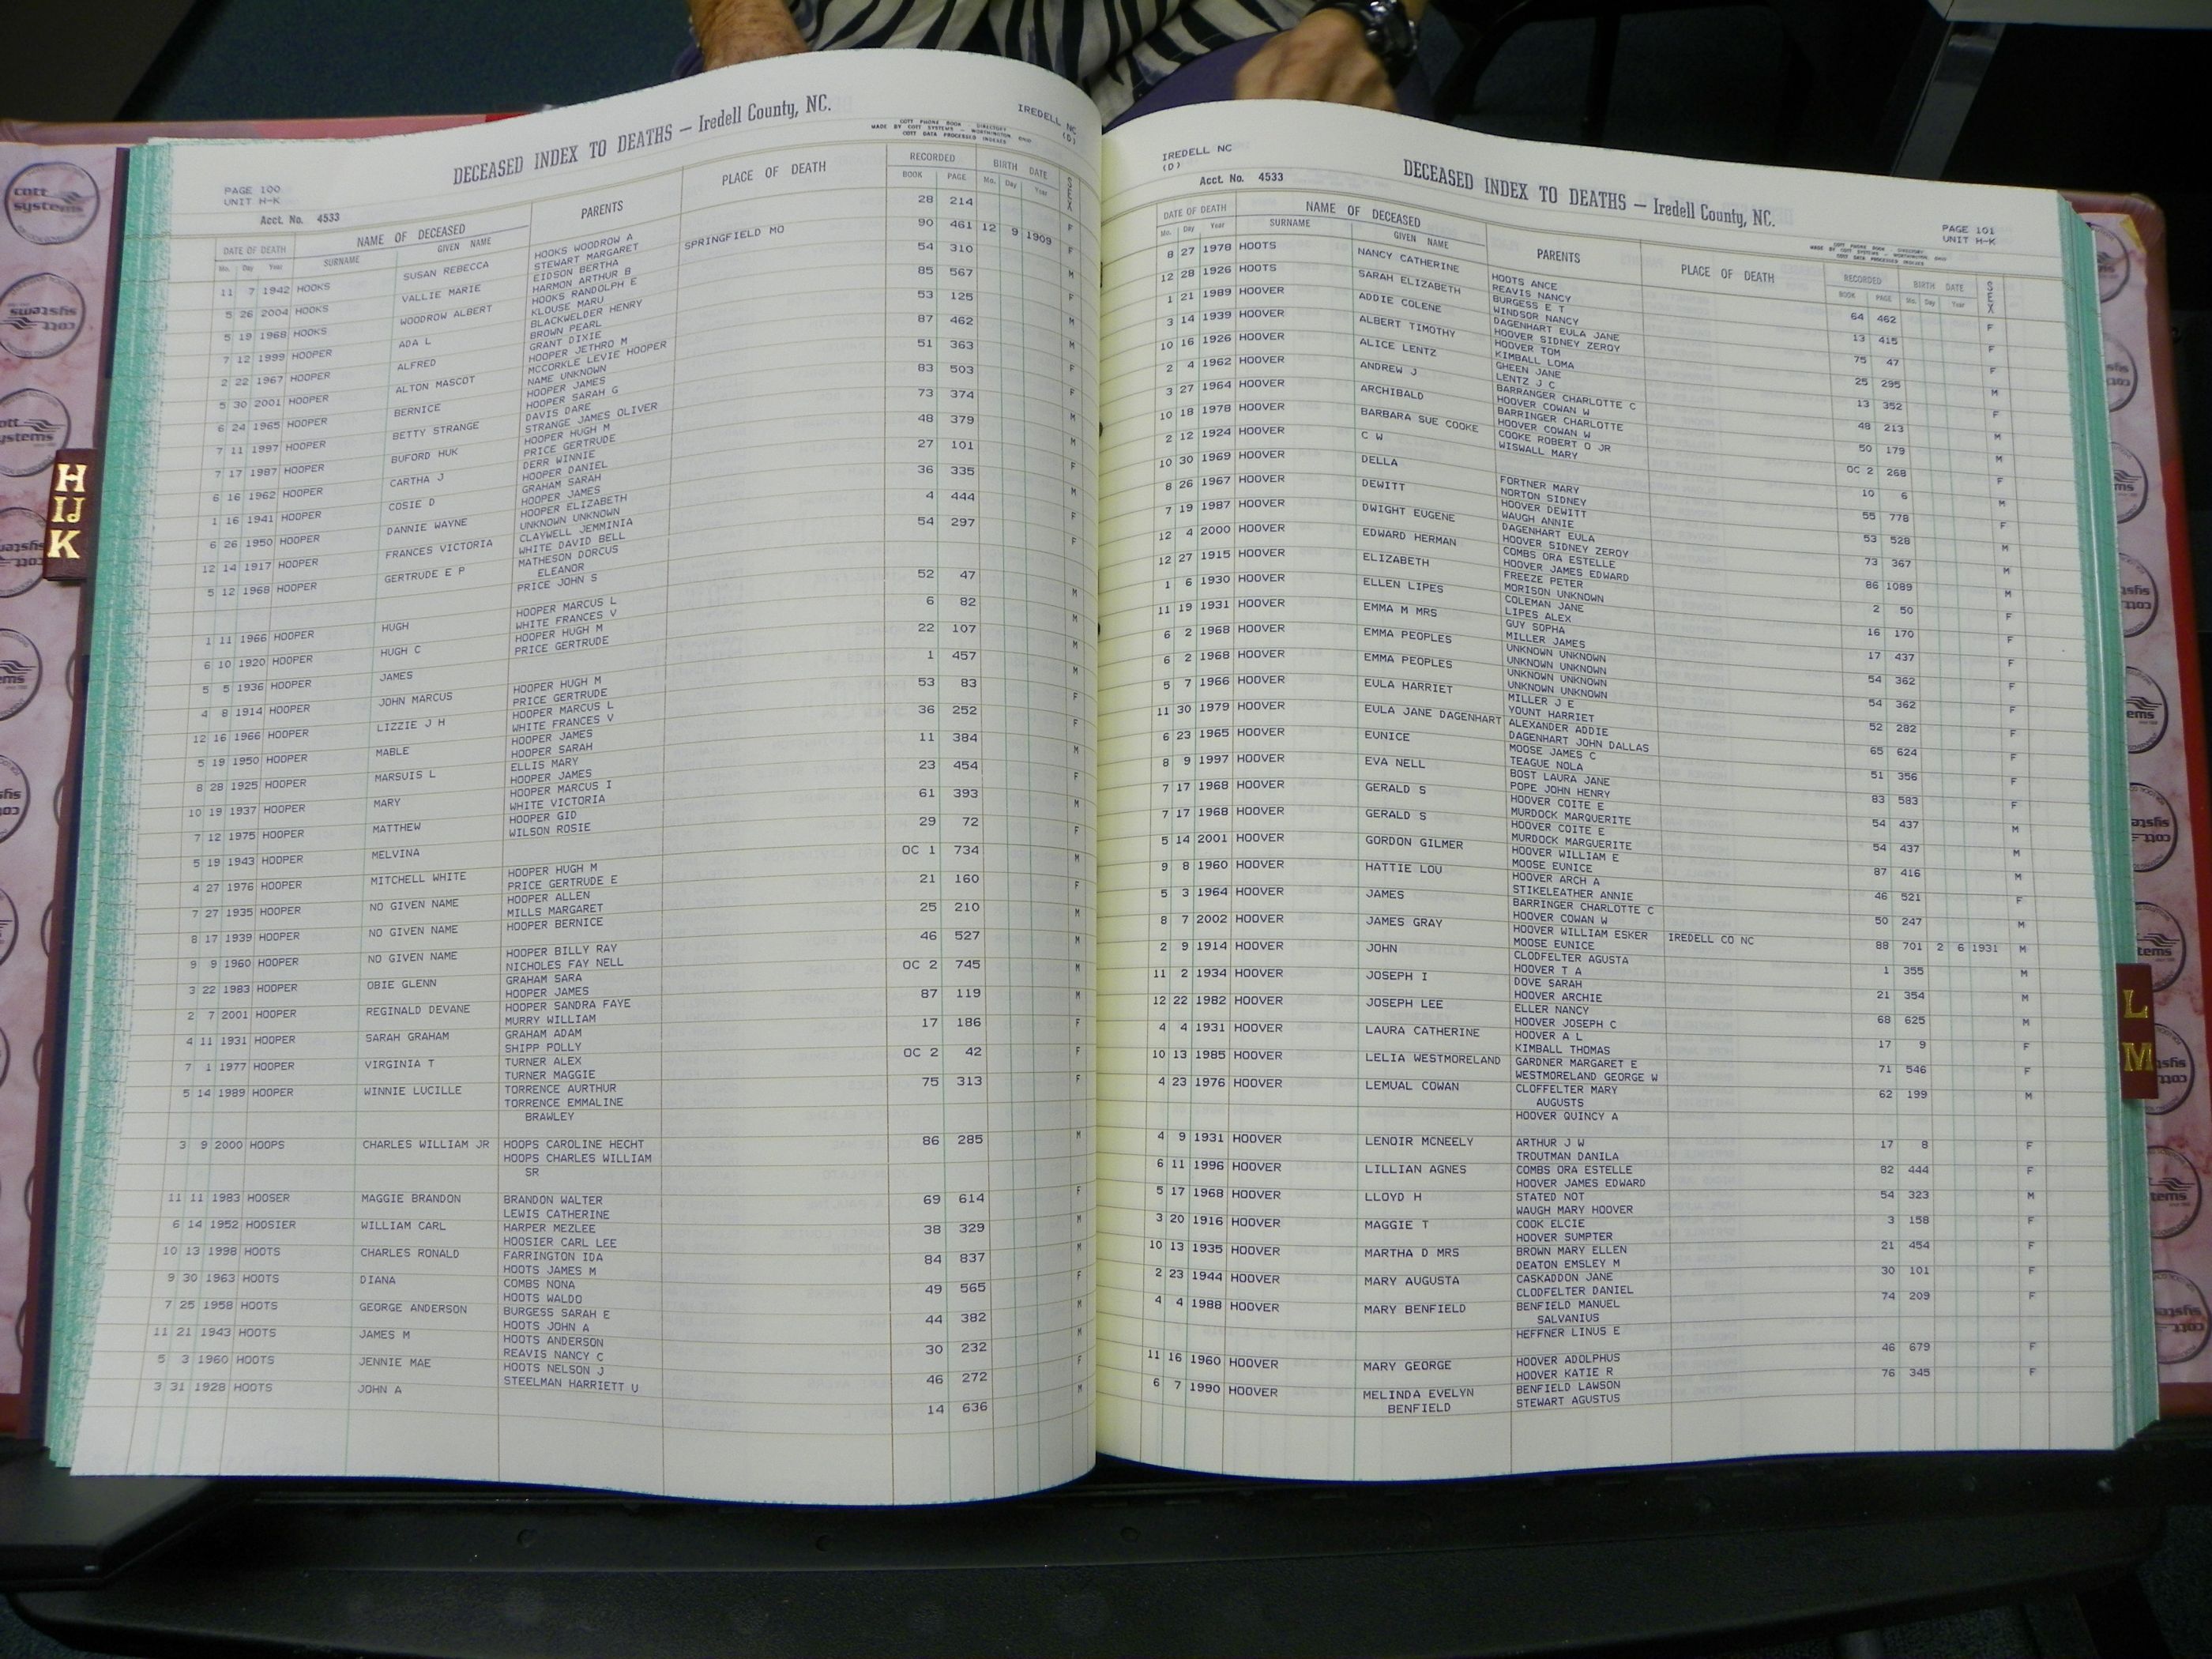 cott
systems
H
IJ
K
L
M
PAGE 100
UNIT H-K
Acct. No. 4533
DECEASED INDEX TO DEATHS — Iredell County, NC.
COTT PHONE BOOK DIRECTORY
MADE BY COTT SYSTEMS — WORTHINGTON, OHIO
COTT DATA PROCESSED INDEXES
IREDELL NC
(D)
DATE OF DEATH NAME OF DECEASED PARENTS PLACE OF DEATH RECORDED BIRTH DATE SEX
Mo. Day Year SURNAME GIVEN NAME BOOK PAGE Mo. Day Year
11 7 1942 HOOKS SUSAN REBECCA HOOKS WOODROW A 28 214 F
STEWART MARGARET
5 26 2004 HOOKS VALLIE MARIE EIDSON BERTHA SPRINGFIELD MO 90 461 12 9 1909 F
HARMON ARTHUR B
5 19 1968 HOOKS WOODROW ALBERT HOOKS RANDOLPH E 54 310 M
KLOUSE MARU
7 12 1999 HOOPER ADA L BLACKWELDER HENRY 85 567 F
BROWN PEARL
2 22 1967 HOOPER ALFRED GRANT DIXIE 53 125 M
HOOPER JETHRO M
5 30 2001 HOOPER ALTON MASCOT MCCORKLE LEVIE HOOPER 87 462 M
NAME UNKNOWN
6 24 1965 HOOPER BERNICE HOOPER JAMES 51 363 F
HOOPER SARAH G
7 11 1997 HOOPER BETTY STRANGE DAVIS DARE 83 503 F
STRANGE JAMES OLIVER
7 17 1987 HOOPER BUFORD HUK HOOPER HUGH M 73 374 M
PRICE GERTRUDE
6 16 1962 HOOPER CARTHA J DERR WINNIE 48 379 M
HOOPER DANIEL
1 16 1941 HOOPER COSIE D GRAHAM SARAH 27 101 F
HOOPER JAMES
6 26 1950 HOOPER DANNIE WAYNE HOOPER ELIZABETH 36 335 M
UNKNOWN UNKNOWN
12 14 1917 HOOPER FRANCES VICTORIA CLAYWELL JEMMINIA 4 444 F
WHITE DAVID BELL
5 12 1968 HOOPER GERTRUDE E P MATHESON DORCUS 54 297 F
ELEANOR
PRICE JOHN S
1 11 1966 HOOPER HUGH HOOPER MARCUS L 52 47 M
WHITE FRANCES V
6 10 1920 HOOPER HUGH C HOOPER HUGH M 6 82 M
PRICE GERTRUDE
5 5 1936 HOOPER JAMES 22 107 M
4 8 1914 HOOPER JOHN MARCUS HOOPER HUGH M 1 457 M
PRICE GERTRUDE
12 16 1966 HOOPER LIZZIE J H HOOPER MARCUS L 53 83 F
WHITE FRANCES V
5 19 1950 HOOPER MABLE HOOPER JAMES 36 252 F
HOOPER SARAH
8 28 1925 HOOPER MARSUIS L ELLIS MARY 11 384 M
HOOPER JAMES
10 19 1937 HOOPER MARY HOOPER MARCUS I 23 454 F
WHITE VICTORIA
7 12 1975 HOOPER MATTHEW HOOPER GID 61 393 M
WILSON ROSIE
5 19 1943 HOOPER MELVINA 29 72 F
4 27 1976 HOOPER MITCHELL WHITE HOOPER HUGH M OC 1 734 M
PRICE GERTRUDE E
7 27 1935 HOOPER NO GIVEN NAME HOOPER ALLEN 21 160 F
MILLS MARGARET
8 17 1939 HOOPER NO GIVEN NAME HOOPER BERNICE 25 210 M
9 9 1960 HOOPER NO GIVEN NAME HOOPER BILLY RAY 46 527 M
NICHOLES FAY NELL
3 22 1983 HOOPER OBIE GLENN GRAHAM SARA OC 2 745 M
HOOPER JAMES
2 7 2001 HOOPER REGINALD DEVANE HOOPER SANDRA FAYE 87 119 M
MURRY WILLIAM
4 11 1931 HOOPER SARAH GRAHAM GRAHAM ADAM 17 186 F
SHIPP POLLY
7 1 1977 HOOPER VIRGINIA T TURNER ALEX OC 2 42 F
TURNER MAGGIE
5 14 1989 HOOPER WINNIE LUCILLE TORRENCE AURTHUR 75 313 F
TORRENCE EMMALINE
BRAWLEY
3 9 2000 HOOPS CHARLES WILLIAM JR HOOPS CAROLINE HECHT 86 285 M
HOOPS CHARLES WILLIAM
SR
11 11 1983 HOOSER MAGGIE BRANDON BRANDON WALTER 69 614 F
LEWIS CATHERINE
6 14 1952 HOOSIER WILLIAM CARL HARPER MEZLEE 38 329 M
HOOSIER CARL LEE
10 13 1998 HOOTS CHARLES RONALD FARRINGTON IDA 84 837 M
HOOTS JAMES M
9 30 1963 HOOTS DIANA COMBS NONA 49 565 F
HOOTS WALDO
7 25 1958 HOOTS GEORGE ANDERSON BURGESS SARAH E 44 382 M
HOOTS JOHN A
11 21 1943 HOOTS JAMES M HOOTS ANDERSON 30 232 M
REAVIS NANCY C
5 3 1960 HOOTS JENNIE MAE HOOTS NELSON J 46 272 F
STEELMAN HARRIETT U
3 31 1928 HOOTS JOHN A 14 636 M
IREDELL NC
(D)
Acct. No. 4533
DECEASED INDEX TO DEATHS — Iredell County, NC.
PAGE 101
UNIT H-K
DATE OF DEATH NAME OF DECEASED PARENTS PLACE OF DEATH RECORDED BIRTH DATE SEX
Mo. Day Year SURNAME GIVEN NAME BOOK PAGE Mo. Day Year
8 27 1978 HOOTS NANCY CATHERINE HOOTS ANCE 64 462 F
REAVIS NANCY
12 28 1926 HOOTS SARAH ELIZABETH BURGESS E T 13 415 F
WINDSOR NANCY
1 21 1989 HOOVER ADDIE COLENE DAGENHART EULA JANE 75 47 F
HOOVER SIDNEY ZEROY
3 14 1939 HOOVER ALBERT TIMOTHY HOOVER TOM 25 295 M
KIMBALL LOMA
10 16 1926 HOOVER ALICE LENTZ GHEEN JANE 13 352 F
LENTZ J C
2 4 1962 HOOVER ANDREW J BARRANGER CHARLOTTE C 48 213 M
HOOVER COWAN W
3 27 1964 HOOVER ARCHIBALD BARRINGER CHARLOTTE 50 179 M
HOOVER COWAN W
10 18 1978 HOOVER BARBARA SUE COOKE COOKE ROBERT O JR OC 2 268 F
WISWALL MARY
2 12 1924 HOOVER C W 10 6 M
10 30 1969 HOOVER DELLA FORTNER MARY 55 778 F
NORTON SIDNEY
8 26 1967 HOOVER DEWITT HOOVER DEWITT 53 528 M
WAUGH ANNIE
7 19 1987 HOOVER DWIGHT EUGENE DAGENHART EULA 73 367 M
HOOVER SIDNEY ZEROY
12 4 2000 HOOVER EDWARD HERMAN COMBS ORA ESTELLE 86 1089 M
HOOVER JAMES EDWARD
12 27 1915 HOOVER ELIZABETH FREEZE PETER 2 50 F
MORISON UNKNOWN
1 6 1930 HOOVER ELLEN LIPES COLEMAN JANE 16 170 F
LIPES ALEX
11 19 1931 HOOVER EMMA M MRS GUY SOPHA 17 437 F
MILLER JAMES
6 2 1968 HOOVER EMMA PEOPLES UNKNOWN UNKNOWN 54 362 F
UNKNOWN UNKNOWN
6 2 1968 HOOVER EMMA PEOPLES UNKNOWN UNKNOWN 54 362 F
UNKNOWN UNKNOWN
5 7 1966 HOOVER EULA HARRIET MILLER J E 52 282 F
YOUNT HARRIET
11 30 1979 HOOVER EULA JANE DAGENHART ALEXANDER ADDIE 65 624 F
DAGENHART JOHN DALLAS
6 23 1965 HOOVER EUNICE MOOSE JAMES C 51 356 F
TEAGUE NOLA
8 9 1997 HOOVER EVA NELL BOST LAURA JANE 83 583 F
POPE JOHN HENRY
7 17 1968 HOOVER GERALD S HOOVER COITE E 54 437 M
MURDOCK MARQUERITE
7 17 1968 HOOVER GERALD S HOOVER COITE E 54 437 M
MURDOCK MARGUERITE
5 14 2001 HOOVER GORDON GILMER HOOVER WILLIAM E 87 416 M
MOOSE EUNICE
9 8 1960 HOOVER HATTIE LOU HOOVER ARCH A 46 521 F
STIKELEATHER ANNIE
5 3 1964 HOOVER JAMES BARRINGER CHARLOTTE C 50 247 M
HOOVER COWAN W
8 7 2002 HOOVER JAMES GRAY HOOVER WILLIAM ESKER IREDELL CO NC 88 701 2 6 1931 M
MOOSE EUNICE
2 9 1914 HOOVER JOHN CLODFELTER AGUSTA 1 355 M
HOOVER T A
11 2 1934 HOOVER JOSEPH I DOVE SARAH 21 354 M
HOOVER ARCHIE
12 22 1982 HOOVER JOSEPH LEE ELLER NANCY 68 625 M
HOOVER JOSEPH C
4 4 1931 HOOVER LAURA CATHERINE HOOVER A L 17 9 F
KIMBALL THOMAS
10 13 1985 HOOVER LELIA WESTMORELAND GARDNER MARGARET E 71 546 F
WESTMORELAND GEORGE W
4 23 1976 HOOVER LEMUAL COWAN CLOFFELTER MARY 62 199 M
AUGUSTS
HOOVER QUINCY A
4 9 1931 HOOVER LENOIR MCNEELY ARTHUR J W 17 8 F
TROUTMAN DANILA
6 11 1996 HOOVER LILLIAN AGNES COMBS ORA ESTELLE 82 444 F
HOOVER JAMES EDWARD
5 17 1968 HOOVER LLOYD H STATED NOT 54 323 M
WAUGH MARY HOOVER
3 20 1916 HOOVER MAGGIE T COOK ELCIE 3 158 F
HOOVER SUMPTER
10 13 1935 HOOVER MARTHA D MRS BROWN MARY ELLEN 21 454 F
DEATON EMSLEY M
2 23 1944 HOOVER MARY AUGUSTA CASKADDON JANE 30 101 F
CLODFELTER DANIEL
4 4 1988 HOOVER MARY BENFIELD BENFIELD MANUEL 74 209 F
SALVANIUS
HEFFNER LINUS E
11 16 1960 HOOVER MARY GEORGE HOOVER ADOLPHUS 46 679 F
HOOVER KATIE R
6 7 1990 HOOVER MELINDA EVELYN BENFIELD LAWSON 76 345 F
BENFIELD STEWART AGUSTUS